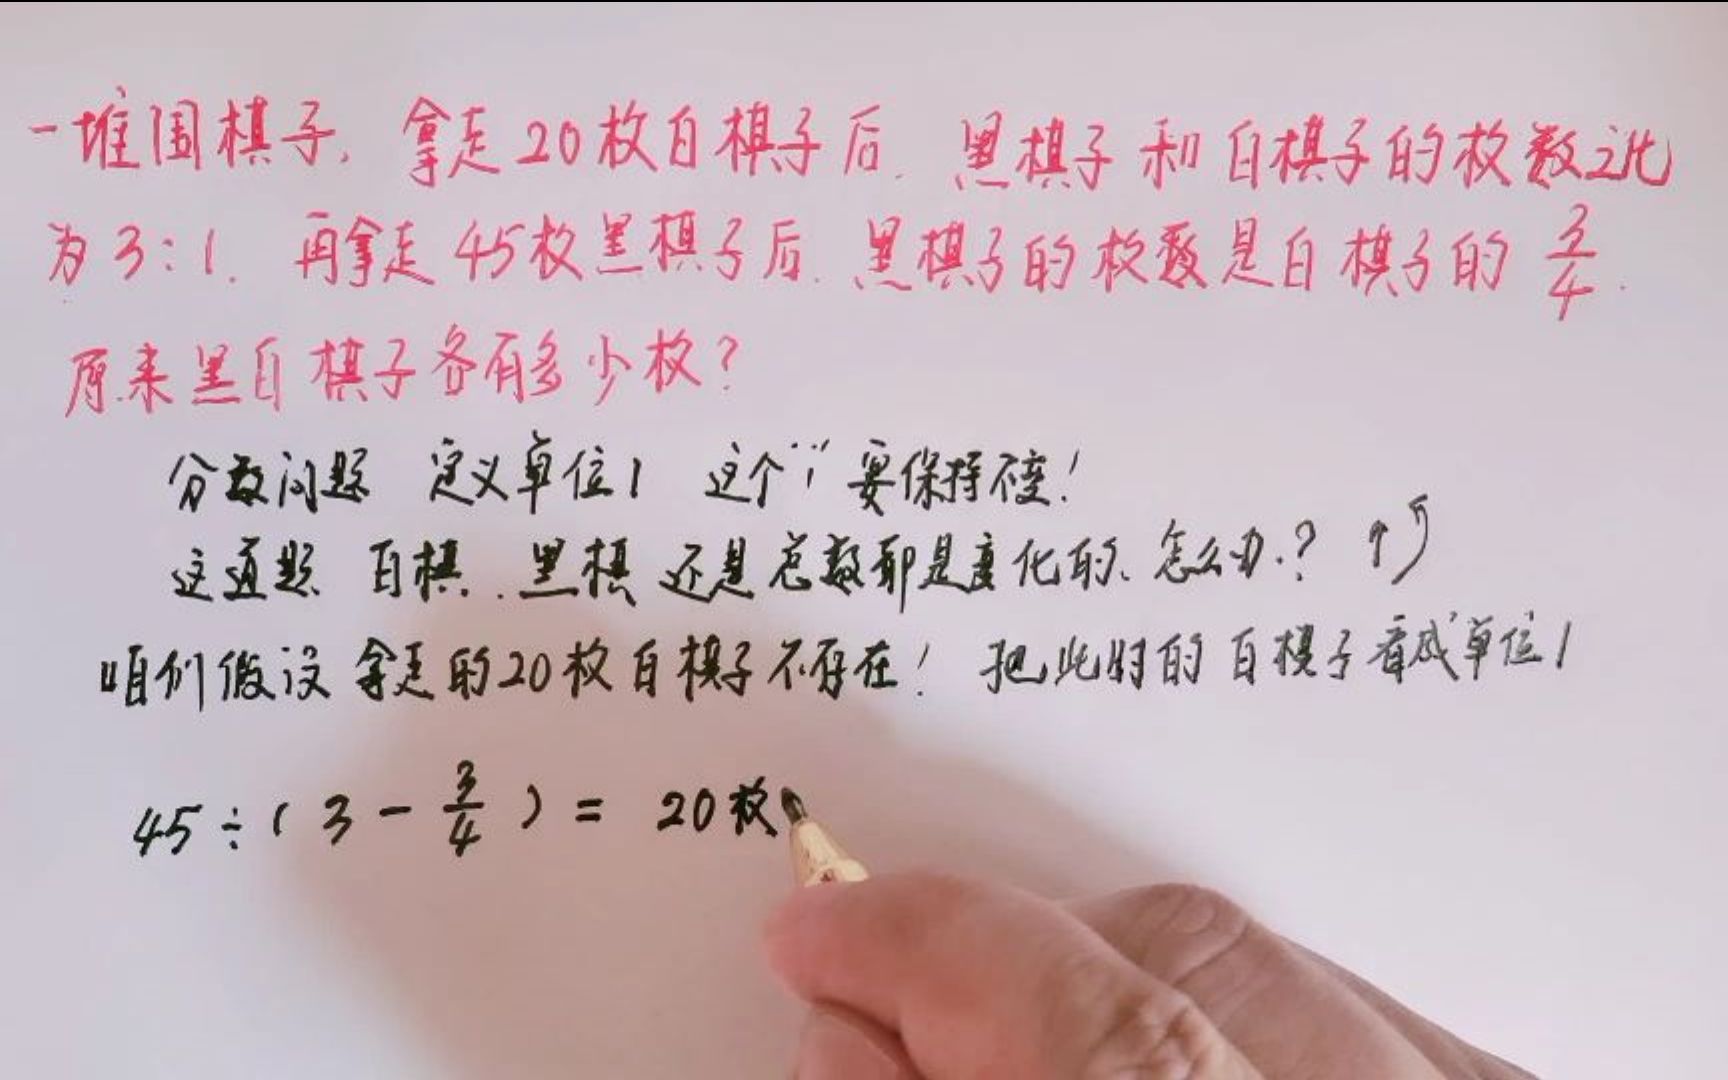 一堆围棋子,拿走20枚白棋子后.黑棋子和白棋子的枚数之比
为3:1.再拿走45枚黑棋子后.黑棋子的枚数是白棋子的3/4.
原来黑白棋子各有多少枚?
分数问题 定义单位1 这个"1"要保持不变!
这道题 白棋.黑棋 还是总数都是变化的.怎么办.?
咱们假设拿走的20枚白棋子不存在! 把此时的白棋子看成单位1
45÷(3-3/4)=20枚